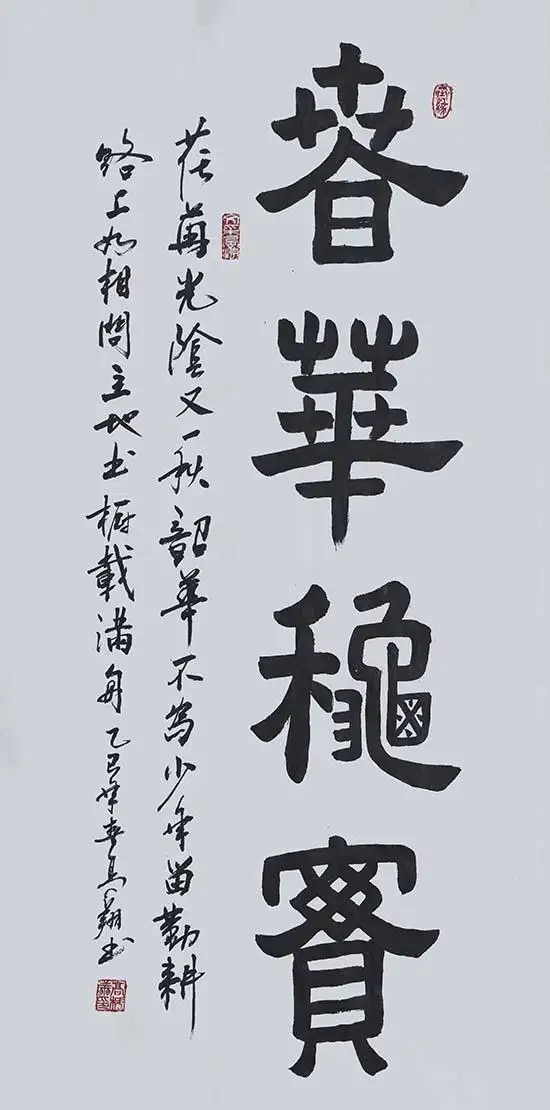 春華龝實
荏苒光陰又一秋韶華不為少年留勤耕
路上如相問立地书橱載滿舟乙巳年春高翔书